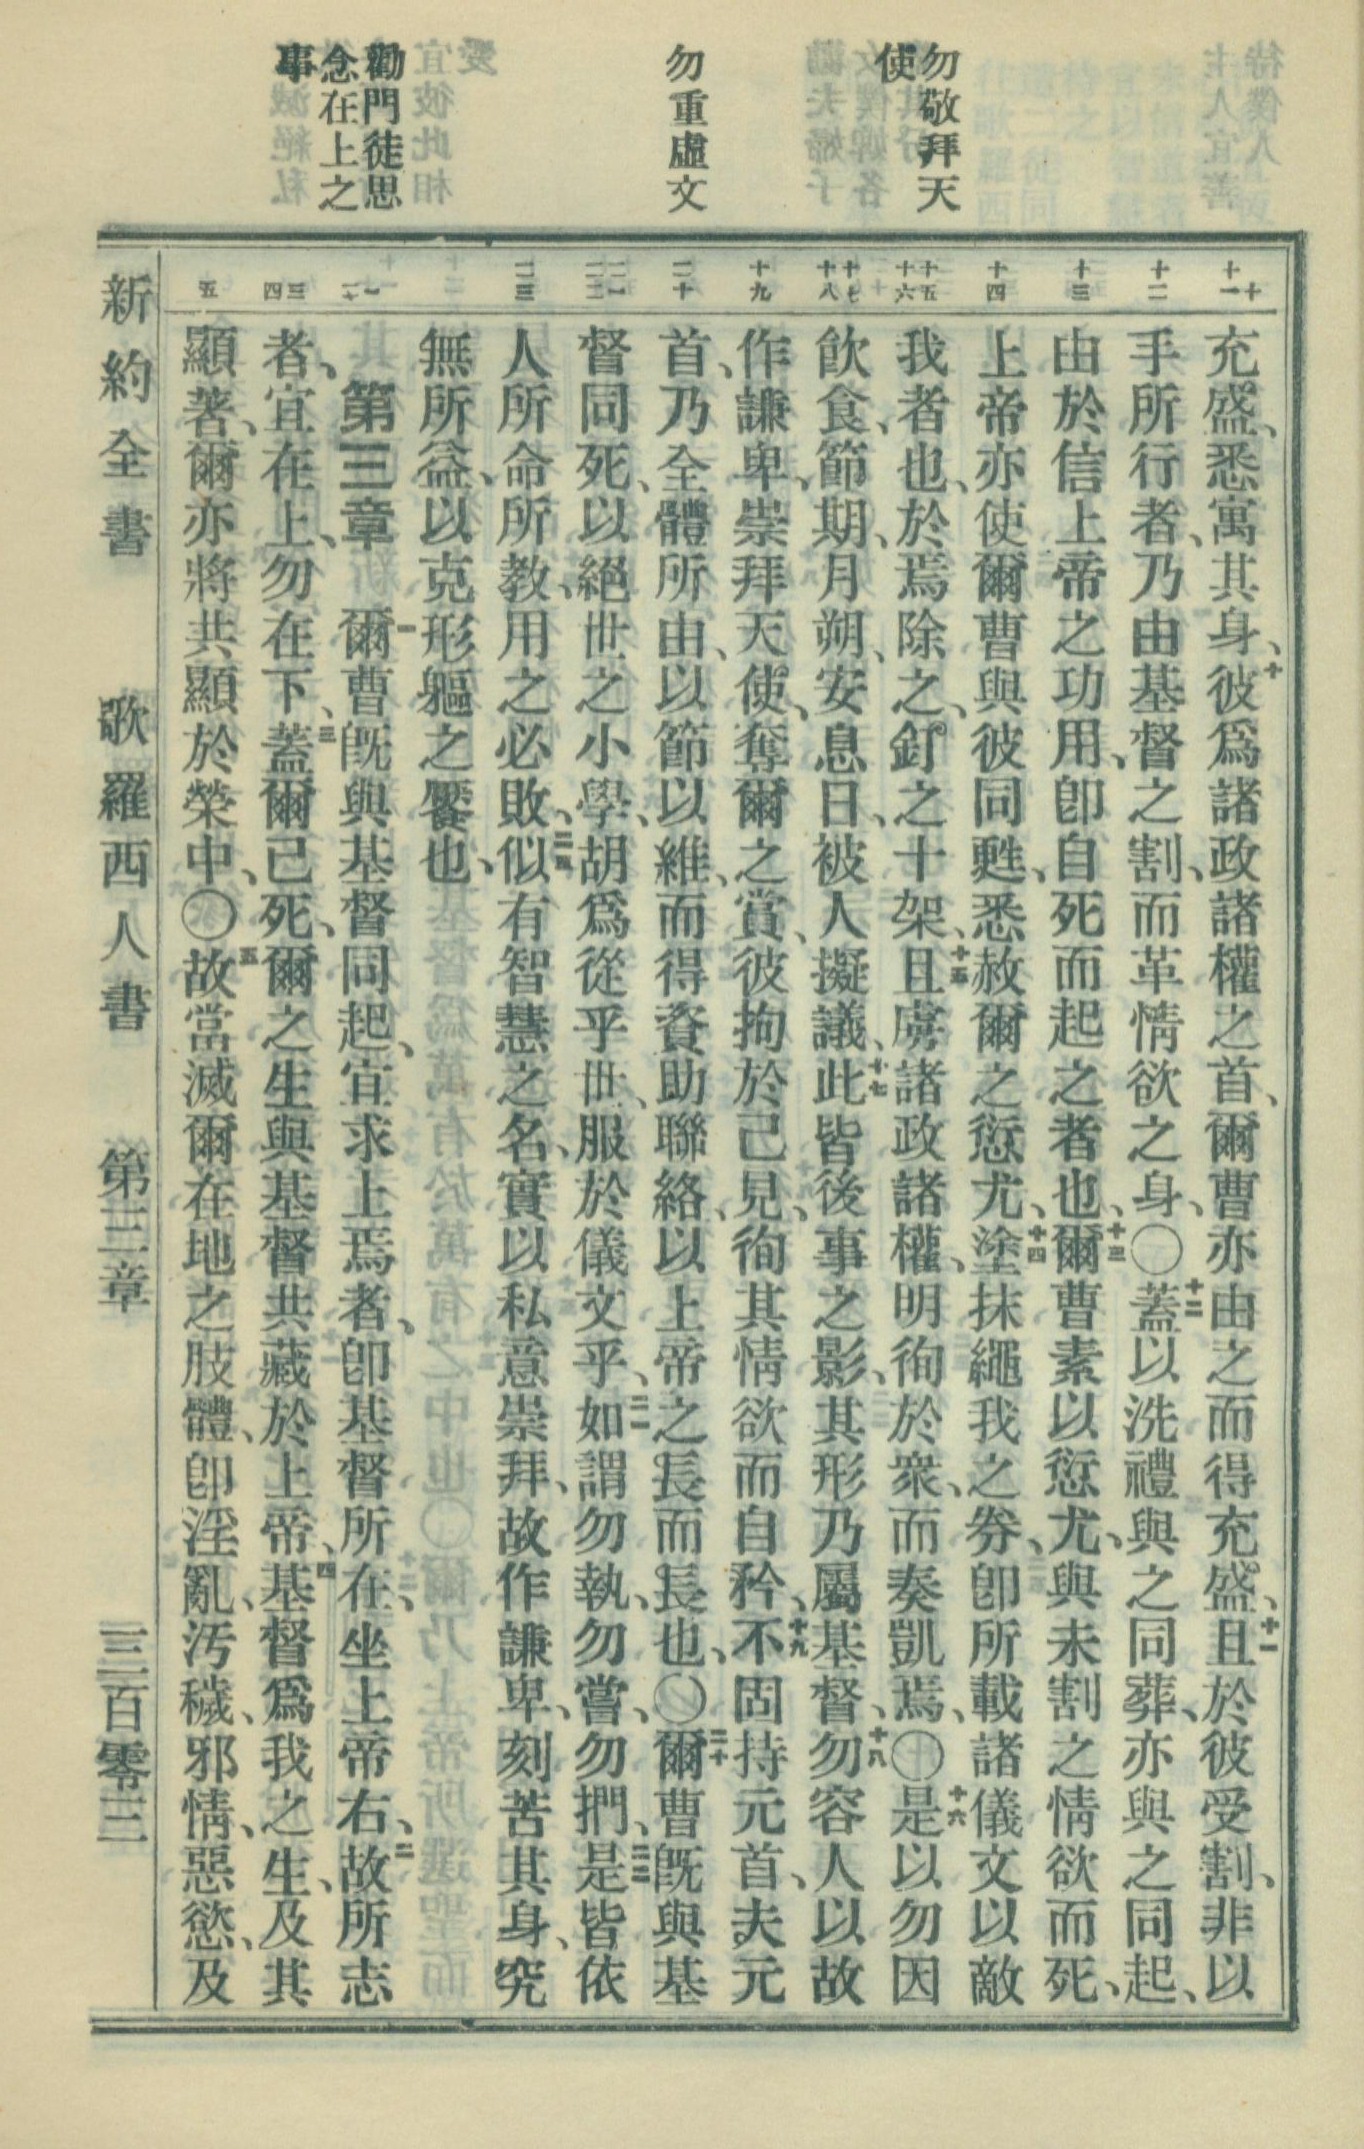 勿敬拜天
使
勿重虛文
勸門徒思
念在上之
事
十 十一
十二
十三
十四
十五 十六
十七 十八
十九
二十
二一 二二
二三
一 二
三 四
五
充盛、悉寓其身、十彼爲諸政諸權之首、爾曹亦由之而得充盛、十一且於彼受割、非以
手所行者、乃由基督之割、而革情欲之身、〇十二蓋以洗禮與之同葬、亦與之同起、
由於信上帝之功用、卽自死而起之者也、十三爾曹素以愆尤、與未割之情欲而死、
上帝亦使爾曹與彼同甦、悉赦爾之愆尤、十四塗抹繩我之券、卽所載諸儀文以敵
我者也、於焉除之、釘之十架、十五且虜諸政諸權、明徇於衆、而奏凱焉、〇十六是以勿因
飲食、節期、月朔、安息日、被人擬議、十七此皆後事之影、其形乃屬基督、十八勿容人以故
作謙卑、崇拜天使、奪爾之賞、彼拘於己見、徇其情欲而自矜、十九不固持元首、夫元
首、乃全體所由、以節以維、而得資助聯絡、以上帝之長而長也、〇二十爾曹旣與基
督同死、以絕世之小學、胡爲從乎世、服於儀文乎、二一如謂勿執、勿嘗、勿捫、二二是皆依
人所命所教、用之必敗、二三似有智慧之名、實以私意崇拜、故作謙卑、刻苦其身、究
無所益、以克形軀之饜也、
第三章 一爾曹旣與基督同起、宜求上焉者、卽基督所在、坐上帝右、二故所志
者、宜在上、勿在下、三蓋爾已死、爾之生與基督共藏於上帝、四基督爲我之生、及其
顯著、爾亦將共顯於榮中、〇五故當滅爾在地之肢體、卽淫亂、汚穢、邪情、惡慾、及
新約全書 歌羅西人書 第三章 三百零三